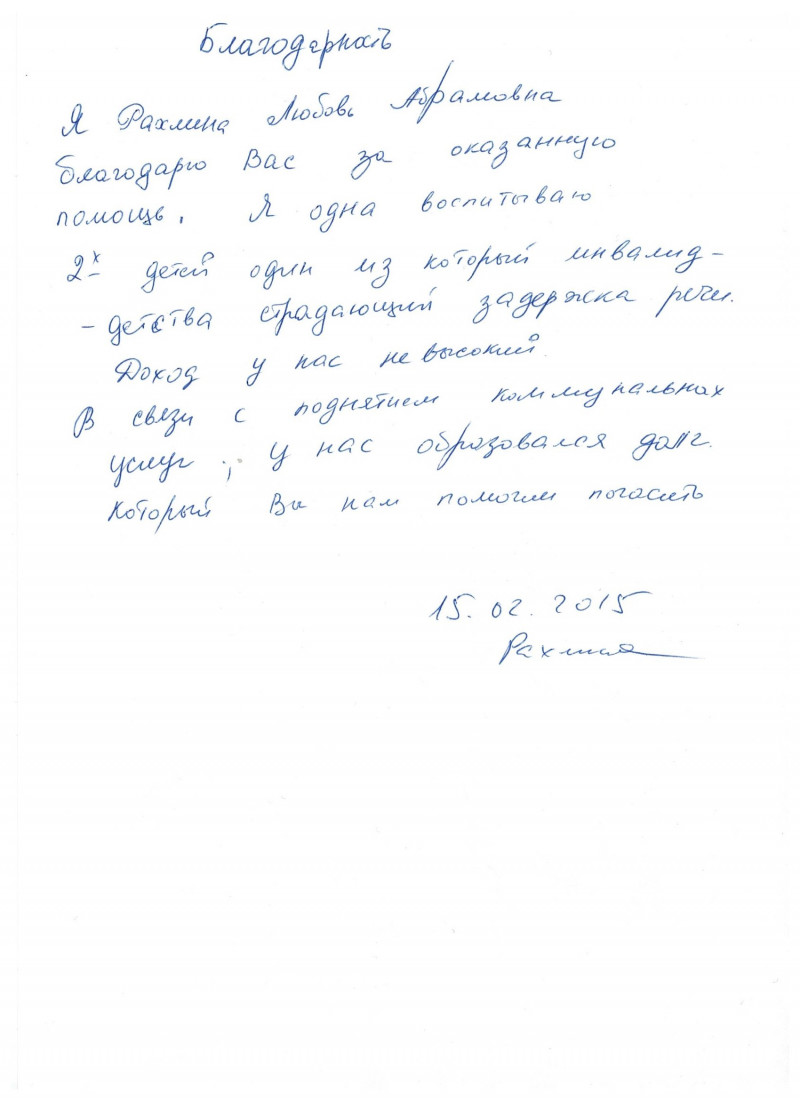 Благодерность
Я Рахмина Любовь Абрамовна
благодарю Вас за оказанную
помощь. Я одна воспитываю
2х детей один из который инвалид-
- детства страдающий задержка речи.
Доход у нас не высокий.
В связи с поднятием коммунальнах
услуг, у нас образовался долг.
который Вы нам помогли погасить
15.02.2015
Рахмина